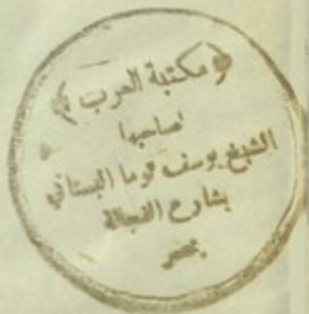 ﴿مكتبة العرب﴾
لصاحبها
الشيخ يوسف توما البستاني
بشارع الفجالة
بمصر